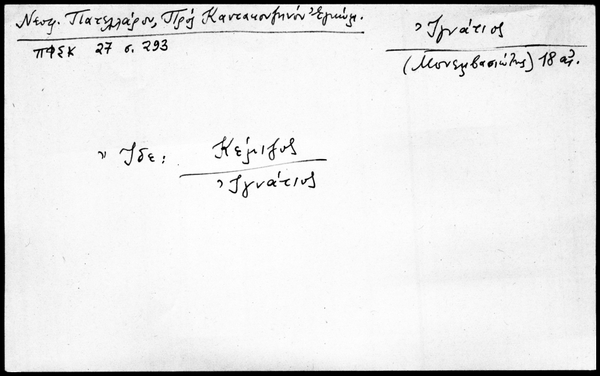 Νεοφ. Πατελλάρου, Πρὸς Καντακουζηνόν Ἐγκώμ.
ΠΦΣΚ 27 σ. 293
Ἰγνάτιος
(Μονεμβασιώτης) 18 αἰ.
Ἴδε: Κέμιζος
Ἰγνάτιος